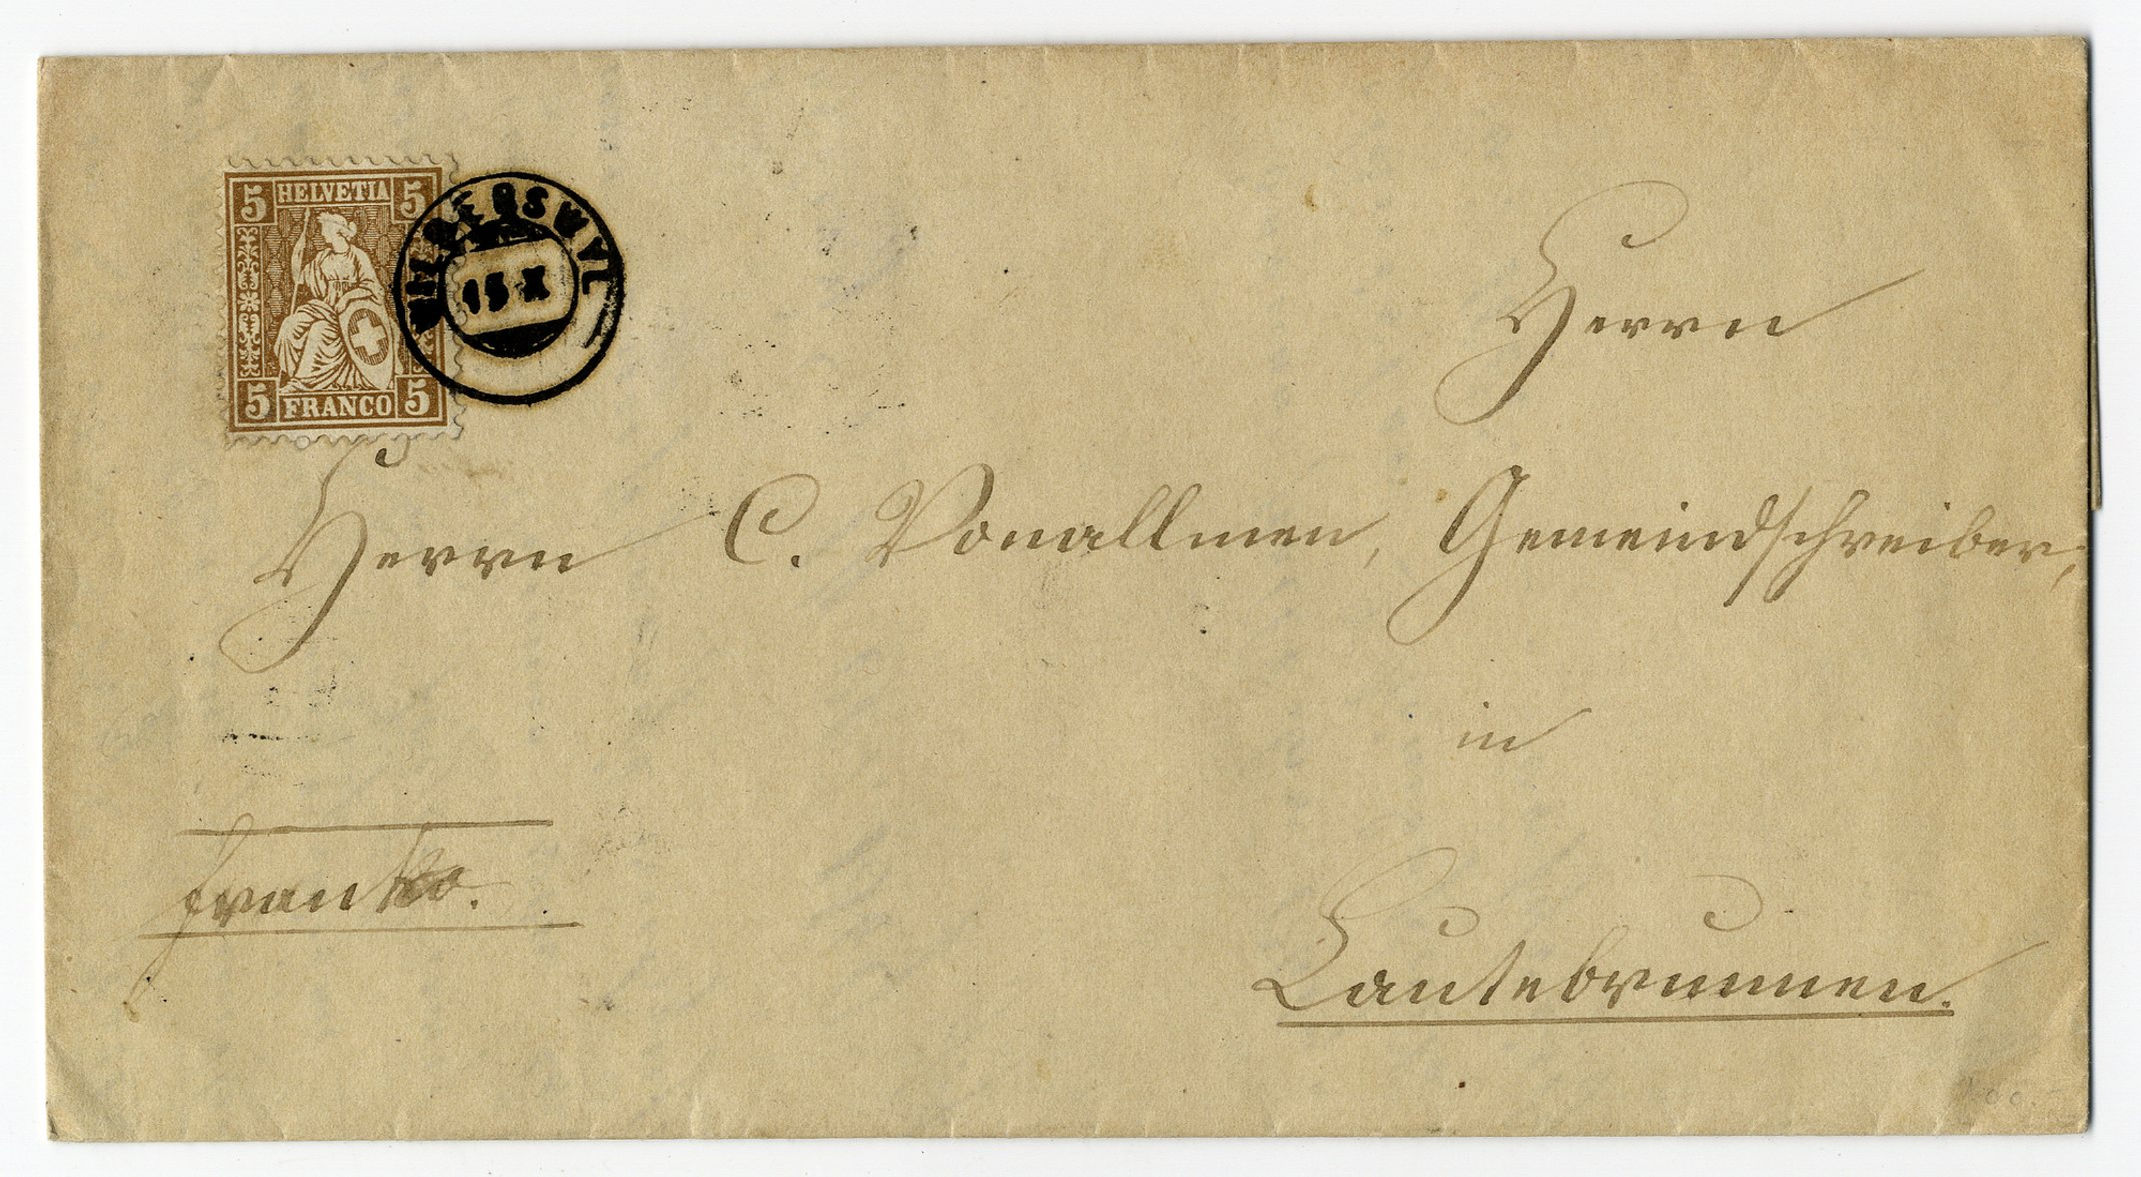 5 HELVETIA 5
5 FRANCO 5
WILDERSWYL
15 X
Herrn
Herrn C. Vonallmen, Gemeindschreiber,
in
franko.
Lautebrunnen.